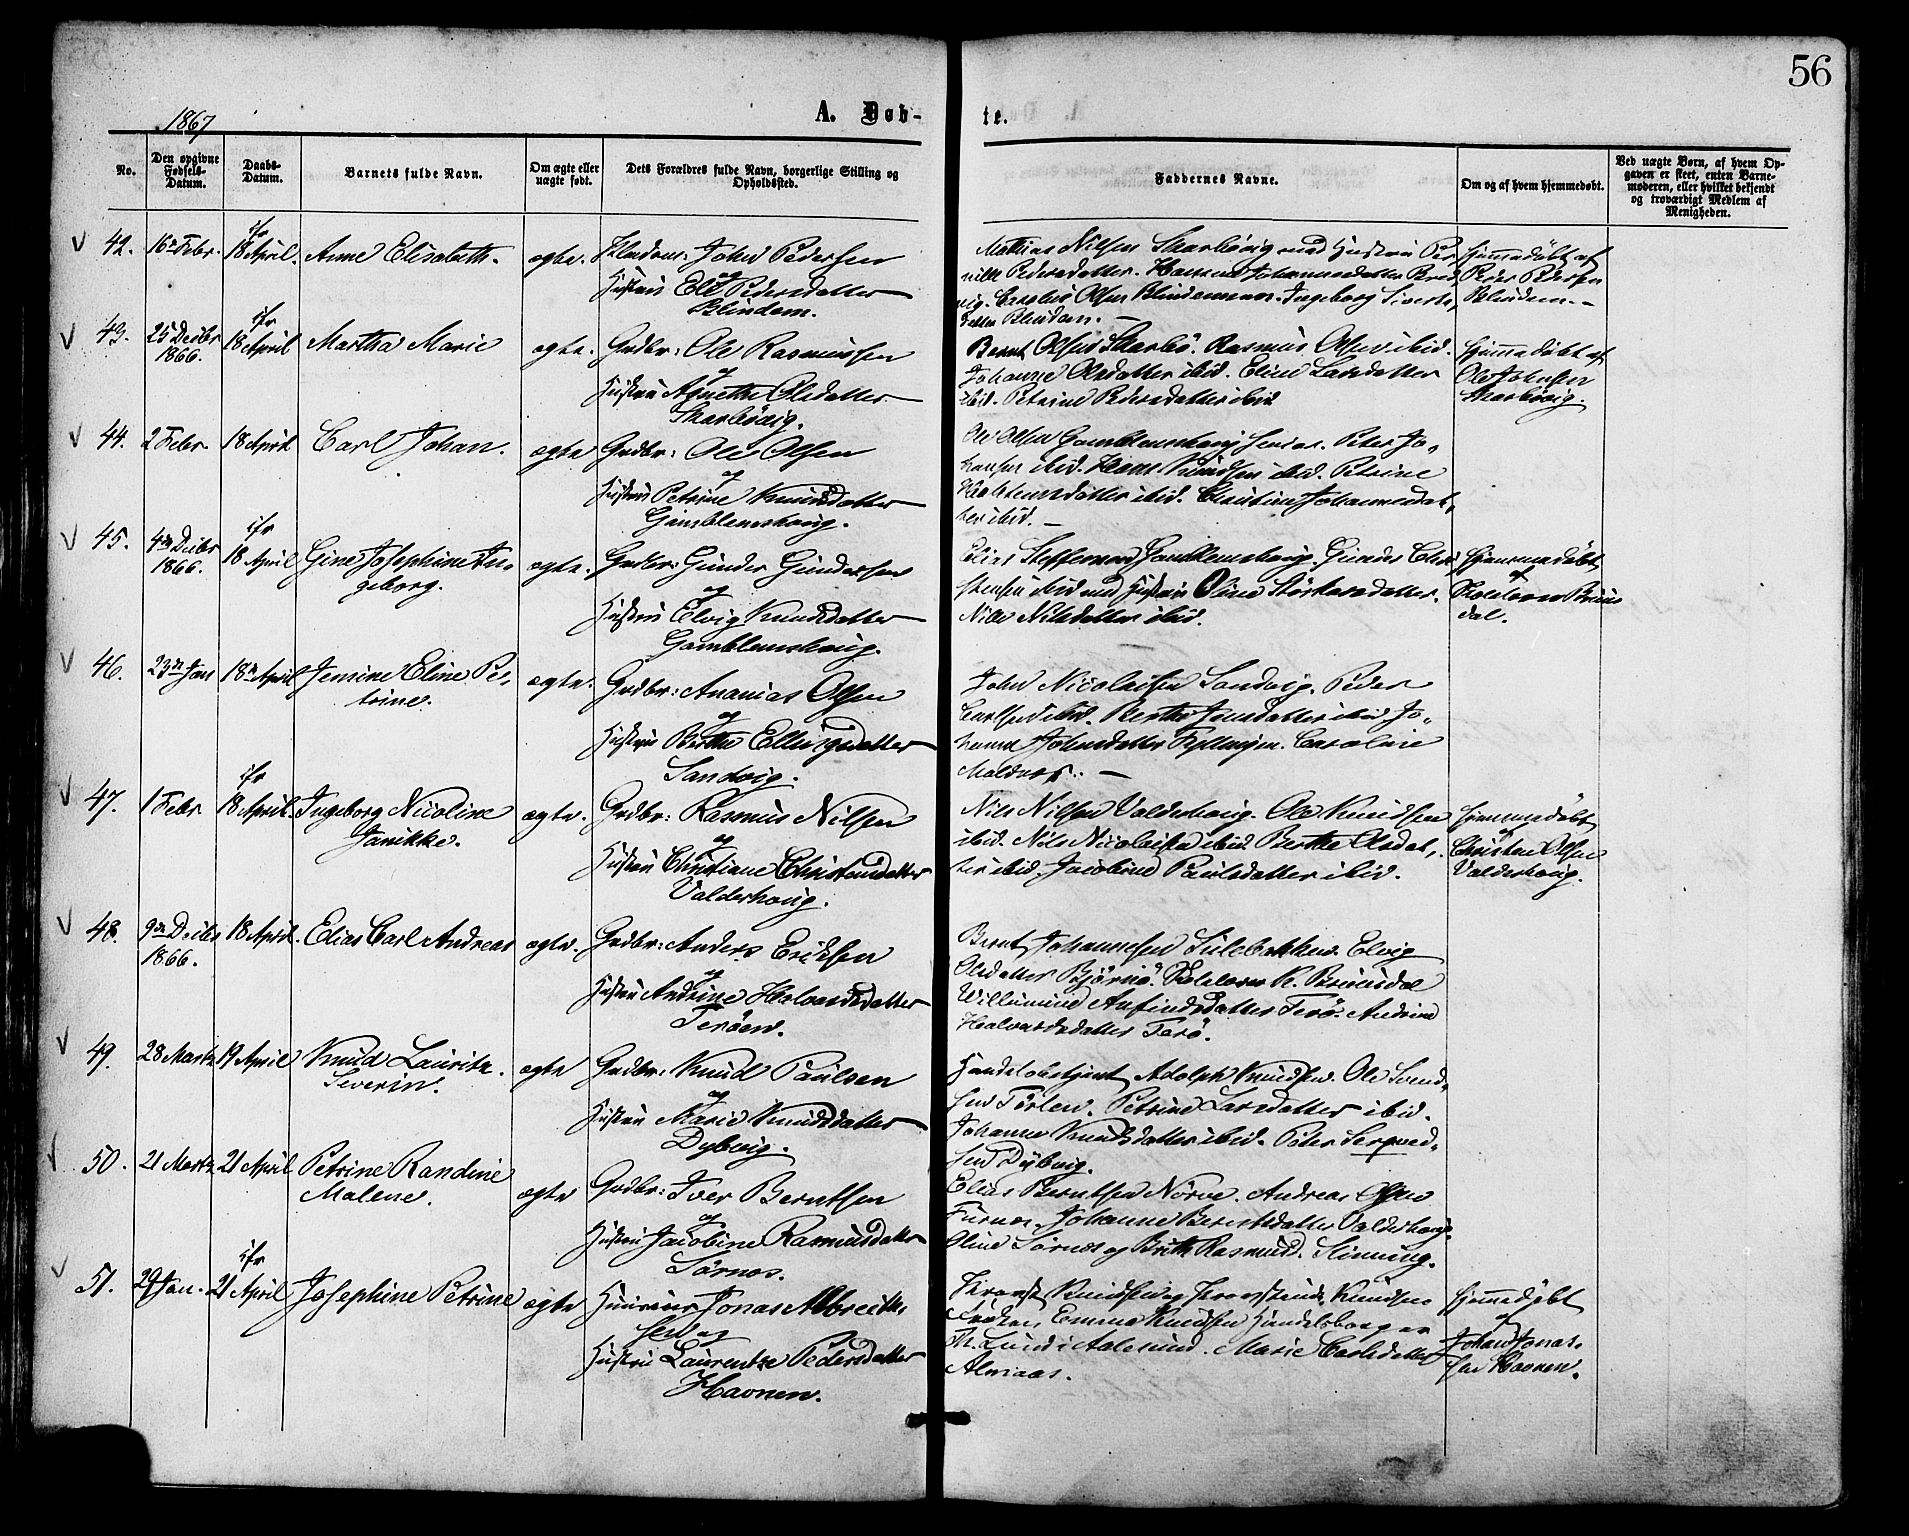 56
1867
A. Døb-
te.
No.
Den opgivne Fødsels-Datum.
Daabs-Datum.
Barnets fulde Navn.
Om ægte eller uægte født.
Dets Forældres fulde Navn, borgerlige Stilling og Opholdssted.
Faddernes Navne.
Om og af hvem hjemmedøbt.
Ved uægte Børn, af hvem Opgaven er skeet, enten Barnemoderen, eller hvilket bekjendt og troværdigt Medlem af Menigheden.
42. 16de Febr. ifr 18 April. Anne Elisabeth. ægte. John Pedersen
og
Hustru Ole Pedersdatter
Blindem.
Mathias Nilsen Skarbövig med Hustru Per
nille Pedersdatter. Hansine Johannesdatter Bred
vig. Carolus Olsen Blindemnes. Ingeborg Siverts
datter Blindem.
Hjemmedöbt af
Peder Pedersen
Blindem.
43. 25 Decbr 1866. ifr 18 April Martha Marie ægte. Grdbr: Ole Rasmussen
og
Hustru Agnethe Olsdatter
Skarbövig.
Bernt Olsen Skarbö. Rasmus Olsen ibid.
Johanne Olsdatter ibid. Eline Larsdatter
ibid. Petrine Pedersdatter ibid
Hjemmedöbt af
Ole Johnsen
Skarbövig.
44. 2 Febr. 18 April Carl Johan. ægte Grdbr: Ole Olsen
og
Hustru Petrine Knudsdatter
Gamblemshoug.
Ole Olsen Gamblemshoug Peter Jo-
hansen ibid. Knudsen ibid. Petrine
ibid. Christine Johannesdat-
ter ibid.
45. 4de Decbr 1866. ifr 18 April Gine Josephine In-
geborg. ægte. Grdbr: Gunder Gundersen
og
Hustru Elvig Knudsdatter
Gamblemshoug.
Elias Steffensen Gamblemshoug. Chri
stensen ibid med Hustru Oline Störkersdatter.
Nille Nilsdatter ibid.
Hjemmedöbt
af
Brüns
dal.
46. 23de Jan 18de April Jensine Eline Pe-
trine. ægte. Grdbr: Ananias Olsen
og
Hustru Birthe Ellingsdatter
Sandvig.
John Nicolaisen Sandvig. Peder
Carlsen ibid. Berthe Jensdatter ibid Jo-
hanne Johnsdatter Caroline
Maldnes.
47. 1 Febr ifr 18 April. Ingeborg Nicoline
Janikke. ægte. Grdbr: Rasmus Nilsen
og
Hustru Christiane Christensdatter
Valderhoug.
Nils Nilsen Valderhoug. Ole Knudsen
ibid. Nils Nicolaisen ibid Berthe Olsdat-
ter ibid. Jacobine Paulsdatter ibid.
Hjemmedöbt
af
Christen Olsen
Valderhoug.
48. 9de Decbr 1866. 18 April. Elias Carl Andreas ægte. Grdbr: Anders Eriksen
og
Hustru Andrine Halvardsdatter
Teröen.
Bernt Johannesen Sulebakken. Elvig
Olsdatter Björnö. K. Brunsdal
Willumine Anfindsdatter Terö. Andrine
Halvardsdatter Terö.
49. 28 Marts 19 April Knud Lauritz
Severin. ægte Grdbr: Knud Paulsen
og
Hustru Marie Knudsdatter
Dybvig.
Handelsbetjent Adolph Knudsen. Ole Svend-
sen Törlen. Petrine Larsdatter ibid.
Johanne Knudsdatter ibid. Peter
sen Dybvig.
50. 21 Marts 21 April Petrine Randine
Malene. ægte Grdbr: Iver Berntsen
og
Hustru Jacobine Rasmusdatter
Sörnes.
Elias Berntsen Nörve. Andreas Olsen
Furnes. Johanne Berntsdatter Valderhoug.
Oline Sörnes og Brith Rasmusd. Slinning.
51. 29 Jan. ifr 21 April Josephine Petrine ægte Jonas Albregt-
sen og
Hustru Laurentze Pedersdatter
Havnen.
Knudsen og Knudsen
Emma Knudsen Handelsborger
Th. Lund i Aalesund. Marie Carlsdatter
Almaas.
Hjemmedöbt
af
Johan Jonas-
sen Havnen.